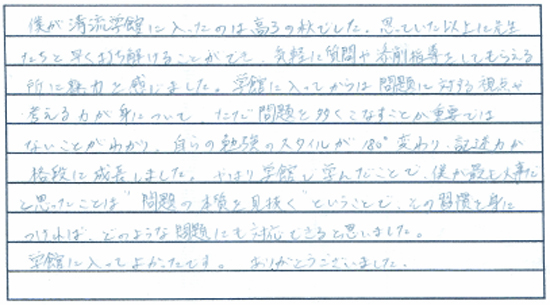 僕が清流学館に入ったのは高3の秋でした。思っていた以上に先生
たちと早く打ち解けることができ、気軽に質問や添削指導をしてもらえる
所に魅力を感じました。学館に入ってからは問題に対する視点や
考える力が身について、ただ問題を多くこなすことが重要では
ないことがわかり、自らの勉強のスタイルが180°変わり、記述力が
格段に成長しました。やはり学館で学んだことで、僕が最も大事だ
と思ったことは"問題の本質を見抜く"ということで、その習慣を身に
つければ、どのような問題にも対応できると思いました。
学館に入ってよかったです。ありがとうございました。